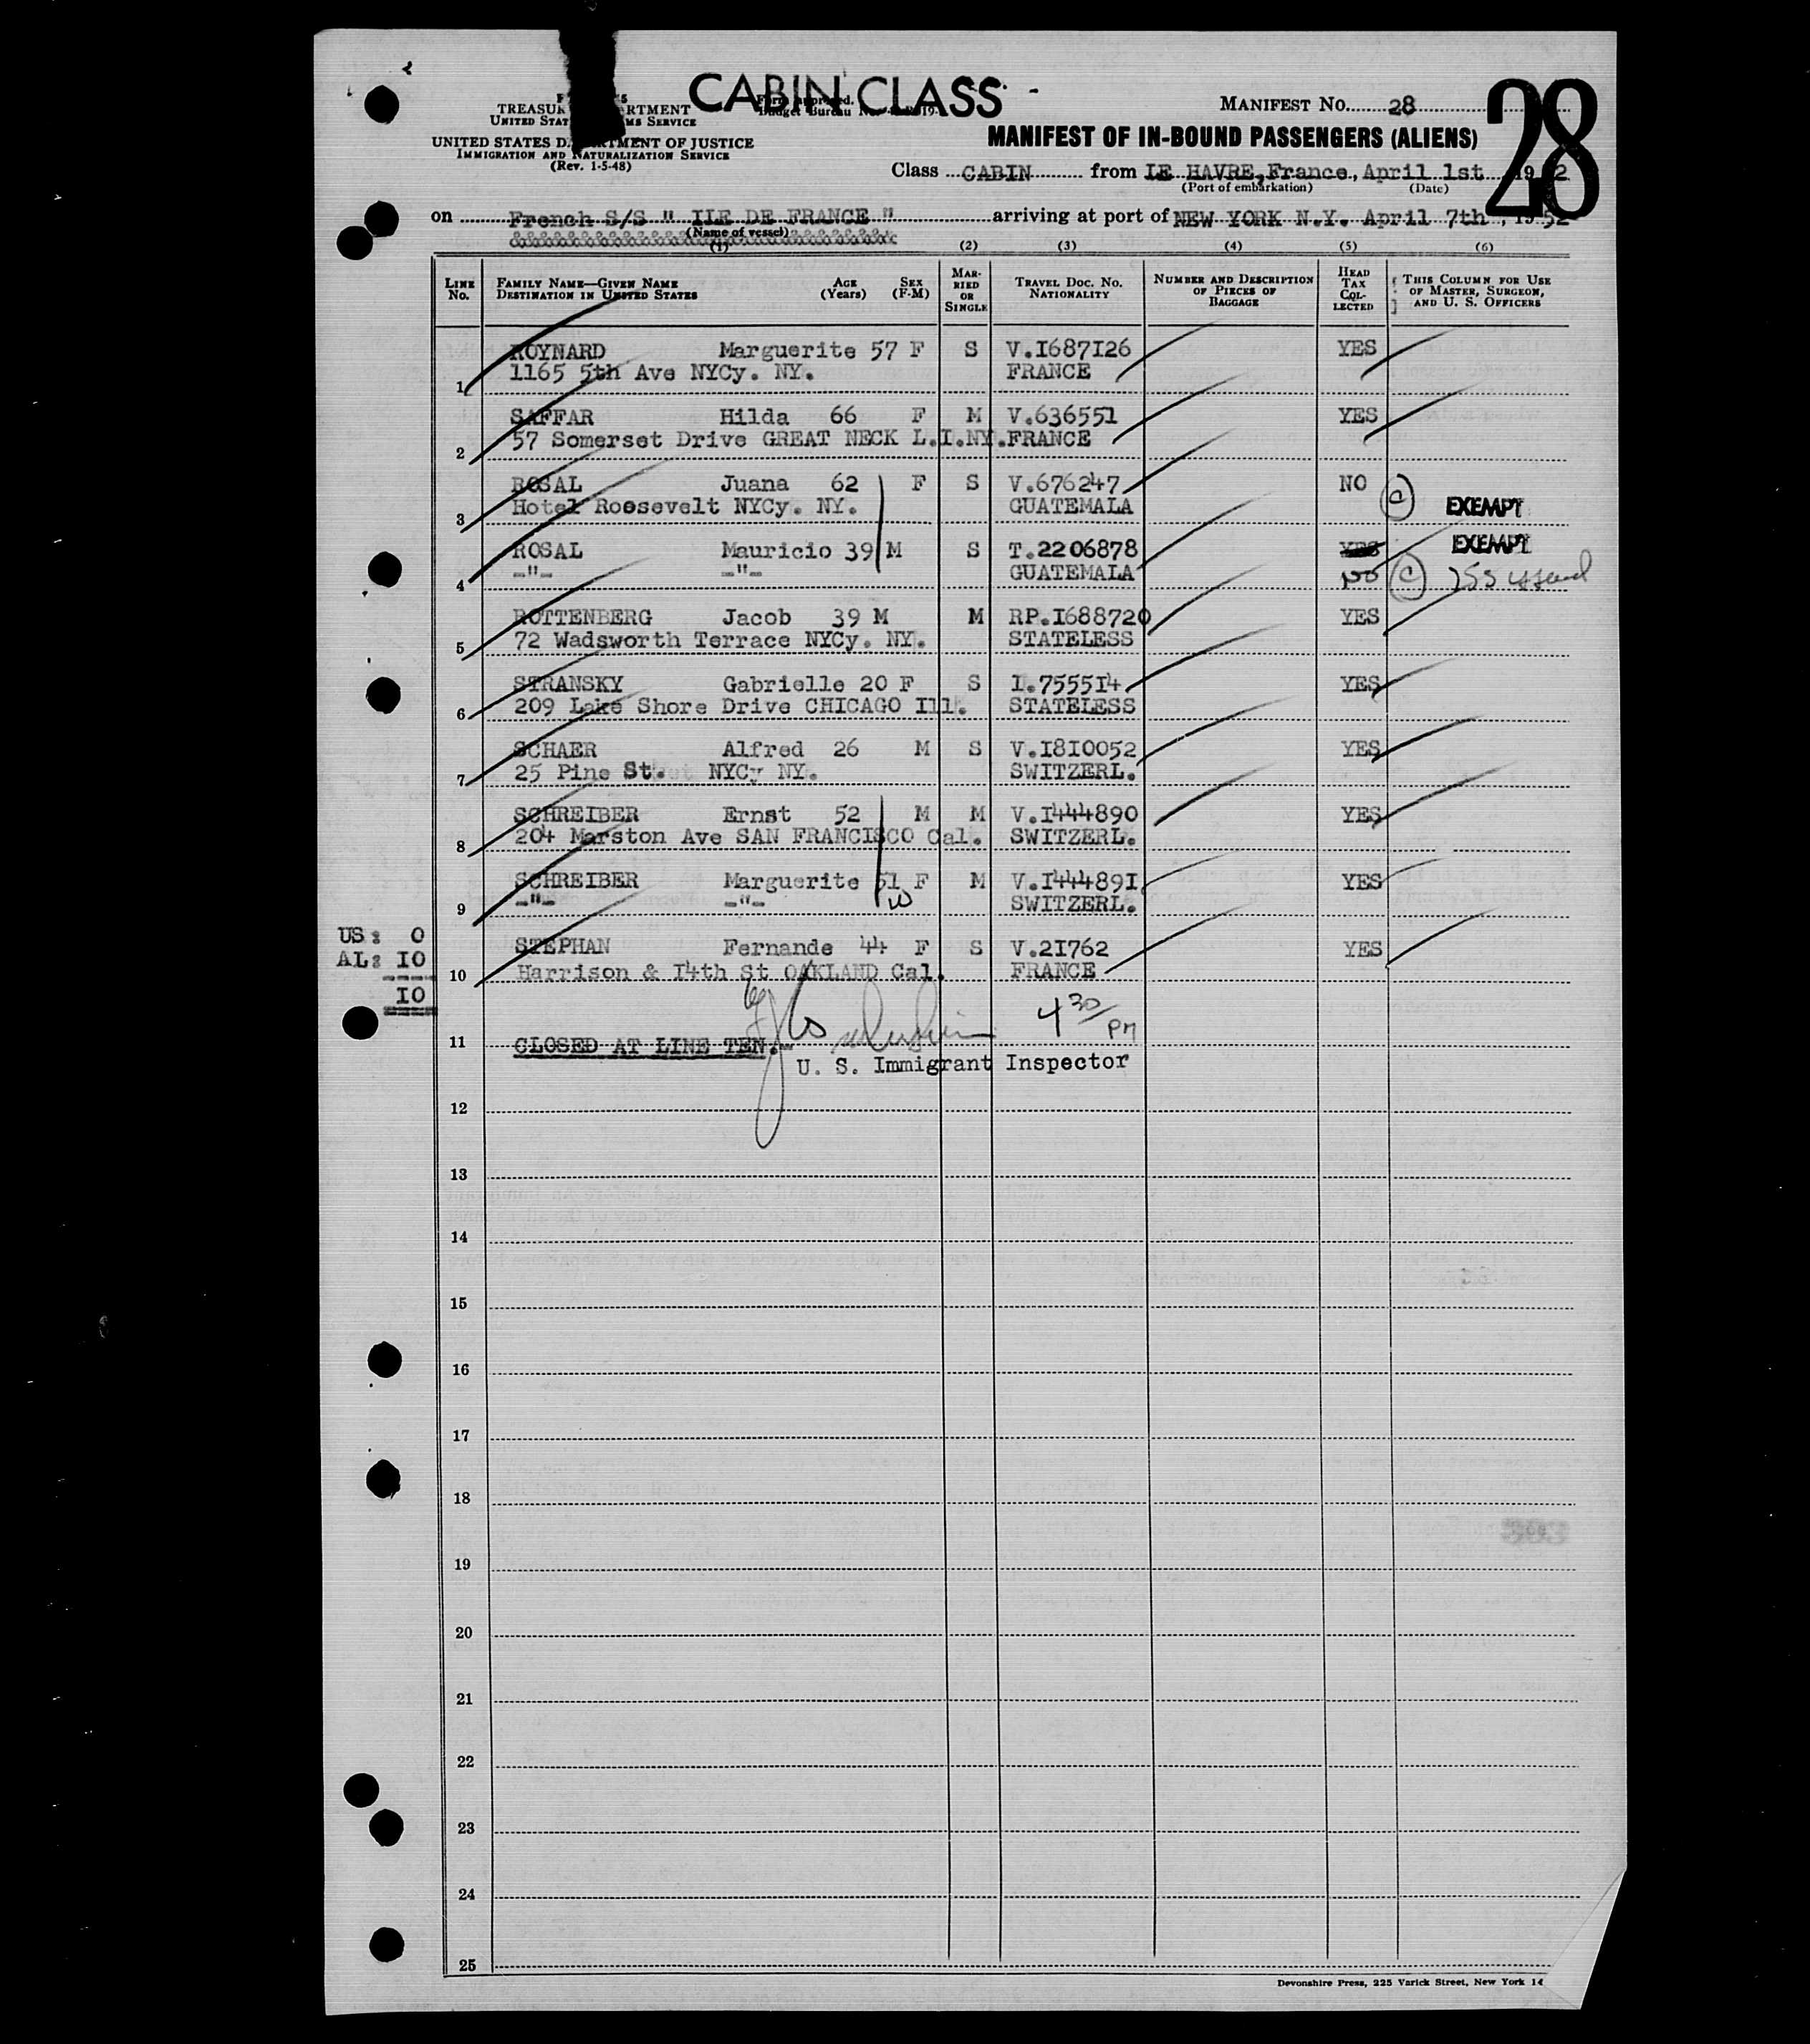 CABIN CLASS
TREASU RTMENT
UNITED STAT MS SERVICE
Form approved.
Budget Bureau No.
MANIFEST NO. 28
28
UNITED STATES D RTMENT OF JUSTICE
IMMIGRATION AND NATURALIZATION SERVICE
(Rev. 1-5-48)
MANIFEST OF IN-BOUND PASSENGERS (ALIENS)
Class CABIN from LE HAVRE, France, April 1st , 19 2
(Port of embarkation) (Date)
on French S/S " ILE DE FRANCE " arriving at port of NEW YORK N.Y. April 7th , 1952
(Name of vessel)
(1) (2) (3) (4) (5) (6)
LINE No. FAMILY NAME—GIVEN NAME DESTINATION IN UNITED STATES AGE (Years) SEX (F-M) MARRIED OR SINGLE TRAVEL DOC. NO. NATIONALITY NUMBER AND DESCRIPTION OF PIECES OF BAGGAGE HEAD TAX COLLECTED THIS COLUMN FOR USE OF MASTER, SURGEON, AND U. S. OFFICERS
ROYNARD Marguerite 57 F S V.I687I26 YES
1 1165 5th Ave NYCy. NY. FRANCE
SAFFAR Hilda 66 F M V.636551 YES
2 57 Somerset Drive GREAT NECK L.I.NY. FRANCE
ROSAL Juana 62 F S V.676247 NO C EXEMPT
3 Hotel Roosevelt NYCy. NY. GUATEMALA
ROSAL Mauricio 39 M S T.2206878 YES EXEMPT
4 -"- -"- GUATEMALA NO C
ROTTENBERG Jacob 39 M M RP.I688720 YES
5 72 Wadsworth Terrace NYCy. NY. STATELESS
STRANSKY Gabrielle 20 F S I.7555I4 YES
6 209 Lake Shore Drive CHICAGO Ill. STATELESS
SCHAER Alfred 26 M S V.I8I0052 YES
7 25 Pine St. NYCy NY. SWITZERL.
SCHREIBER Ernst 52 M M V.I444890 YES
8 204 Marston Ave SAN FRANCISCO Cal. SWITZERL.
SCHREIBER Marguerite 51 F M V.I44489I YES
9 -"- -"- W SWITZERL.
US: 0
STEPHAN Fernande 44 F S V.2I762 YES
AL: IO
10 Harrison & I4th St OAKLAND Cal. FRANCE
IO
4 30 PM
11 CLOSED AT LINE TEN.-
U. S. Immigrant Inspector
12
13
14
15
16
17
18
19
20
21
22
23
24
25
Devonshire Press, 225 Varick Street, New York 14